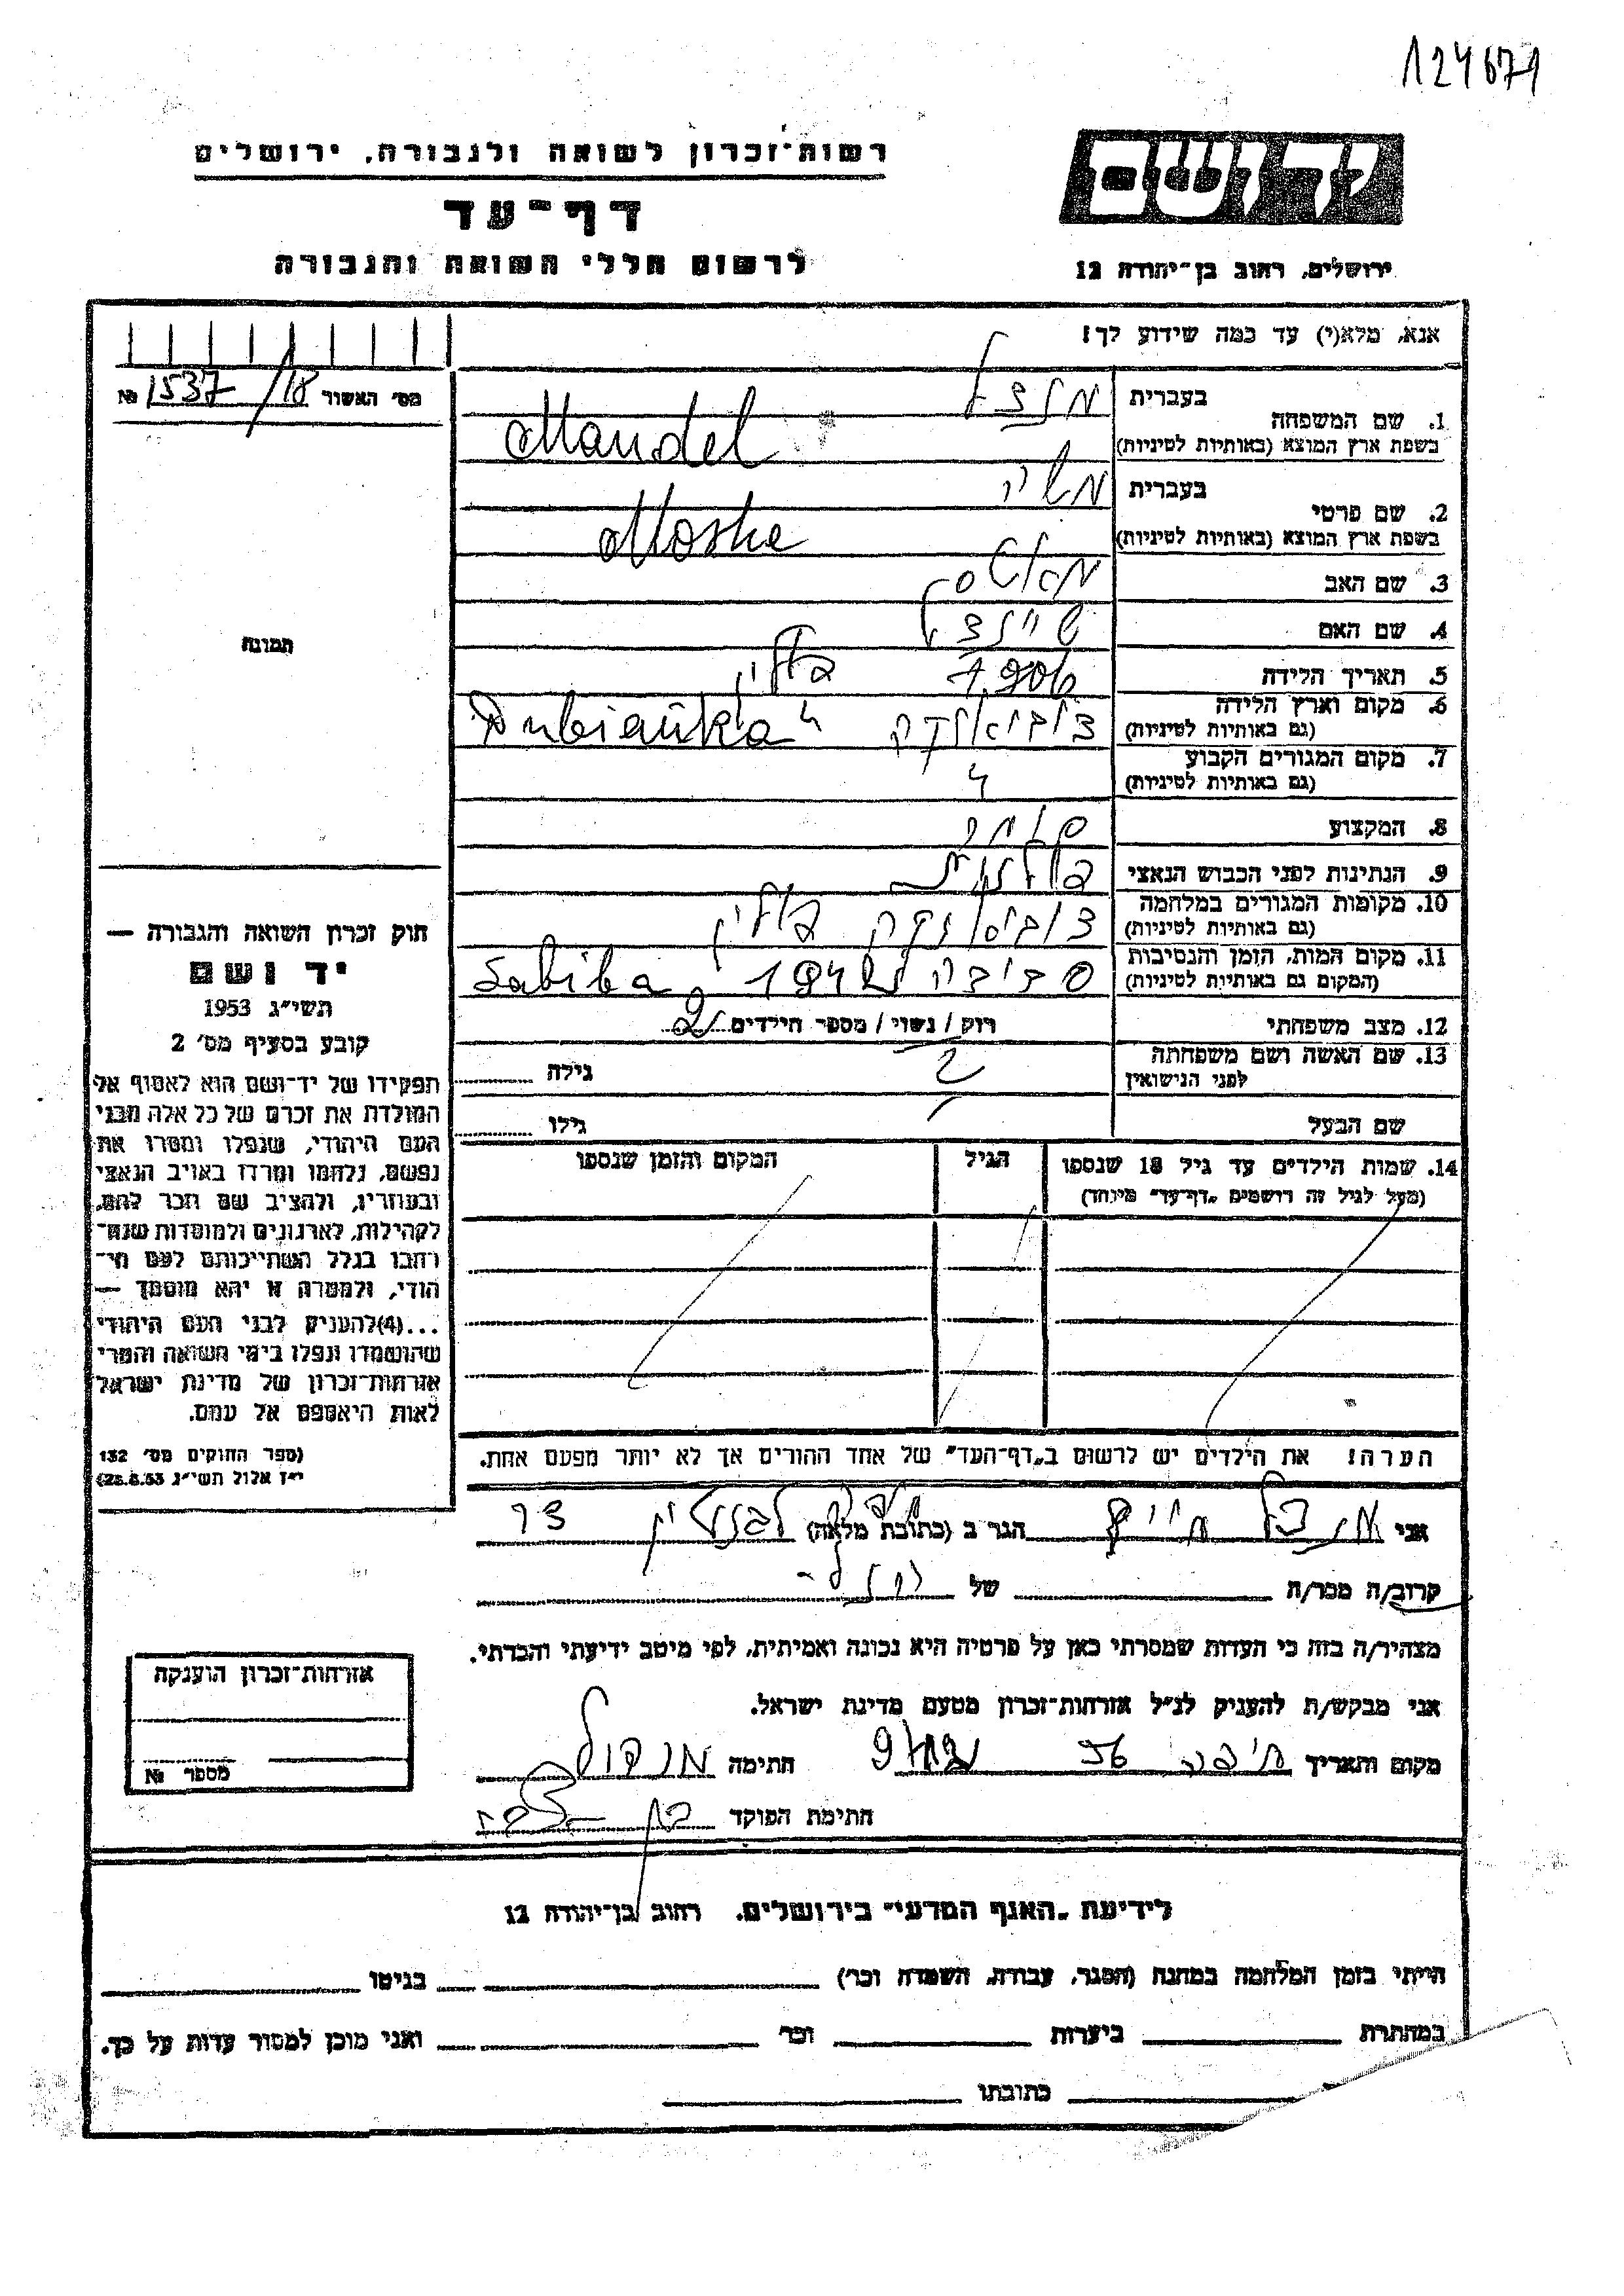 124671
רשות־זכרון לשואה ולגבורה, ירושלים
דף־עד
לרשום חללי השואה והגבורה
יד ושם
ירושלים, רחוב בן־יהודה 12
אנא, מלא(י) עד כמה שידוע לך!
מס׳ האשור 18/1537 №
1. שם המשפחה
בעברית מנדל
בשפת ארץ המוצא (באותיות לטיניות) Mandel
2. שם פרטי
בעברית משה
בשפת ארץ המוצא (באותיות לטיניות) Moshe
3. שם האב
4. שם האם שיינדל
5. תאריך הלידה 1906
6. מקום וארץ הלידה
(גם באותיות לטיניות) דוביאנקה פולין Dubianka
7. מקום המגורים הקבוע
(גם באותיות לטיניות) "
8. המקצוע סוחר
9. הנתינות לפני הכבוש הנאצי פולנית
10. מקומות המגורים במלחמה
(גם באותיות לטיניות) דוביאנקה פולין
11. מקום המות, הזמן והנסיבות
(המקום גם באותיות לטיניות) 1942 Sabiba
12. מצב משפחתי רוק / נשוי / מספר הילדים 2
13. שם האשה ושם משפחתה
לפני הנישואין ? גילה
שם הבעל גילו
14. שמות הילדים עד גיל 18 שנספו
(מעל לגיל זה רושמים „דף־עד" מיוחד)
הגיל
המקום והזמן שנספו
הערה! את הילדים יש לרשום ב„דף־העד" של אחד ההורים אך לא יותר מפעם אחת.
תמונה
חוק זכרון השואה והגבורה —
יד ושם
תשי״ג 1953
קובע בסעיף מס׳ 2
תפקידו של יד־ושם הוא לאסוף אל
המולדת את זכרם של כל אלה מבני
העם היהודי, שנפלו ומסרו את
נפשם, נלחמו ומרדו באויב הנאצי
ובעוזריו, ולהציב שם וזכר להם,
לקהילות, לארגונים ולמוסדות שנח־
רבו בגלל השתייכותם לעם הי־
הודי, ולמטרה זו יהא מוסמך —
...(4) להעניק לבני העם היהודי
שהושמדו ונפלו בימי השואה והמרי
אזרחות־זכרון של מדינת ישראל
לאות היאספם אל עמם.
(ספר החוקים מס׳ 132
י״ז אלול תשי״ג 28.8.53)
אני מנדל חיים הגר ב (כתובת מלאה) 93
קרוב/ה מכר/ה של
מצהיר/ה בזה כי העדות שמסרתי כאן על פרטיה היא נכונה ואמיתית, לפי מיטב ידיעתי והכרתי.
אני מבקש/ת להעניק לנ״ל אזרחות־זכרון מטעם מדינת ישראל.
מקום ותאריך חיפה 56 חתימה מנדל
חתימת הפוקד
אזרחות־זכרון הוענקה
מספר №
לידיעת „האגף המדעי" בירושלים, רחוב בן־יהודה 12
הייתי בזמן המלחמה במחנה (הסגר, עבודה, השמדה וכר׳) בגיטו
במחתרת ביערות וכר׳ ואני מוכן למסור עדות על כך.
כתובתו